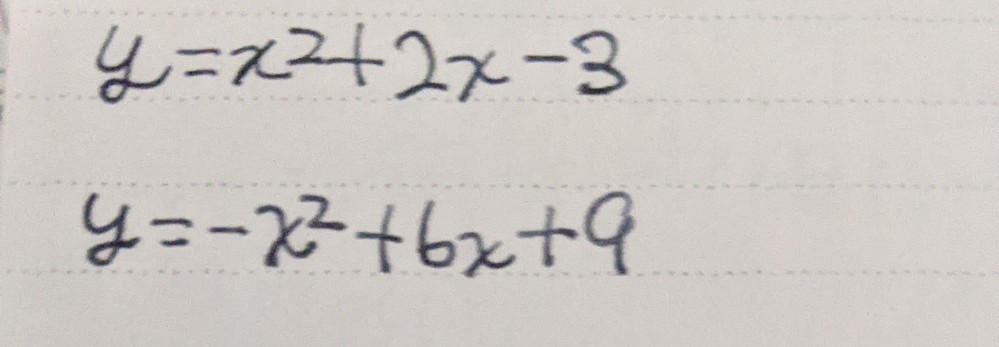 y=x²+2x-3
y=-x²+6x+9